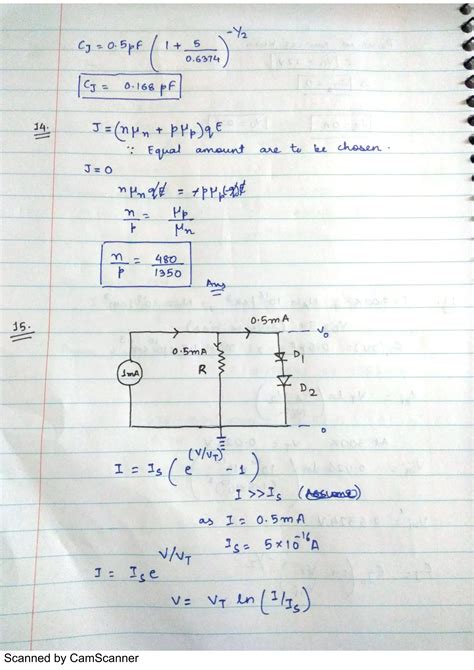 C_J = 0.5pF (1 + 5/0.6374)^-1/2
C_J = 0.168 pF
14. J = (nμn + pμp)qE
∵ Equal amount are to be chosen.
J=0
nμn q E = -pμp(-q)E
n/p = μp/μn
n/p = 480/1350
Ans
15.
0.5mA
Vo
0.5mA
1mA
R
D1
D2
o
I = Is (e^(V/VT) - 1)
I >> Is (Assume)
as I = 0.5mA
Is = 5×10^-16 A
I = Is e^V/VT
V = VT ln (I/Is)
Scanned by CamScanner